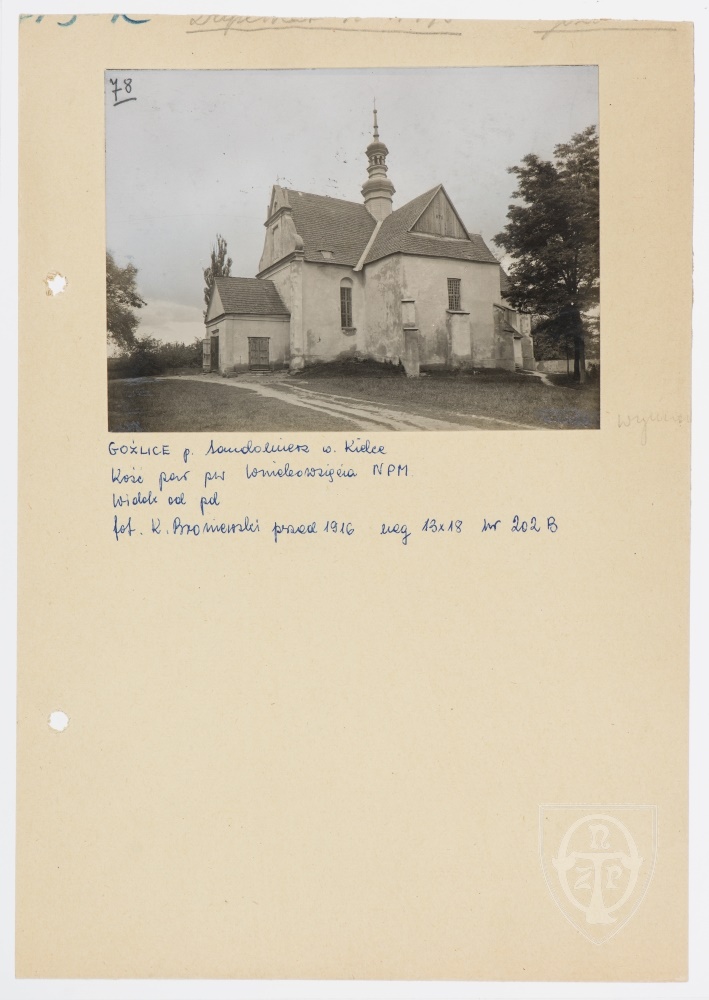 78
GOŹLICE p. Sandomierz w. Kielce
Kość par pw Wniebowzięcia NPM
Widok od pd
fot. K. Broniewski przed 1916 neg 13x18 nr 202 B
N
T
Z P